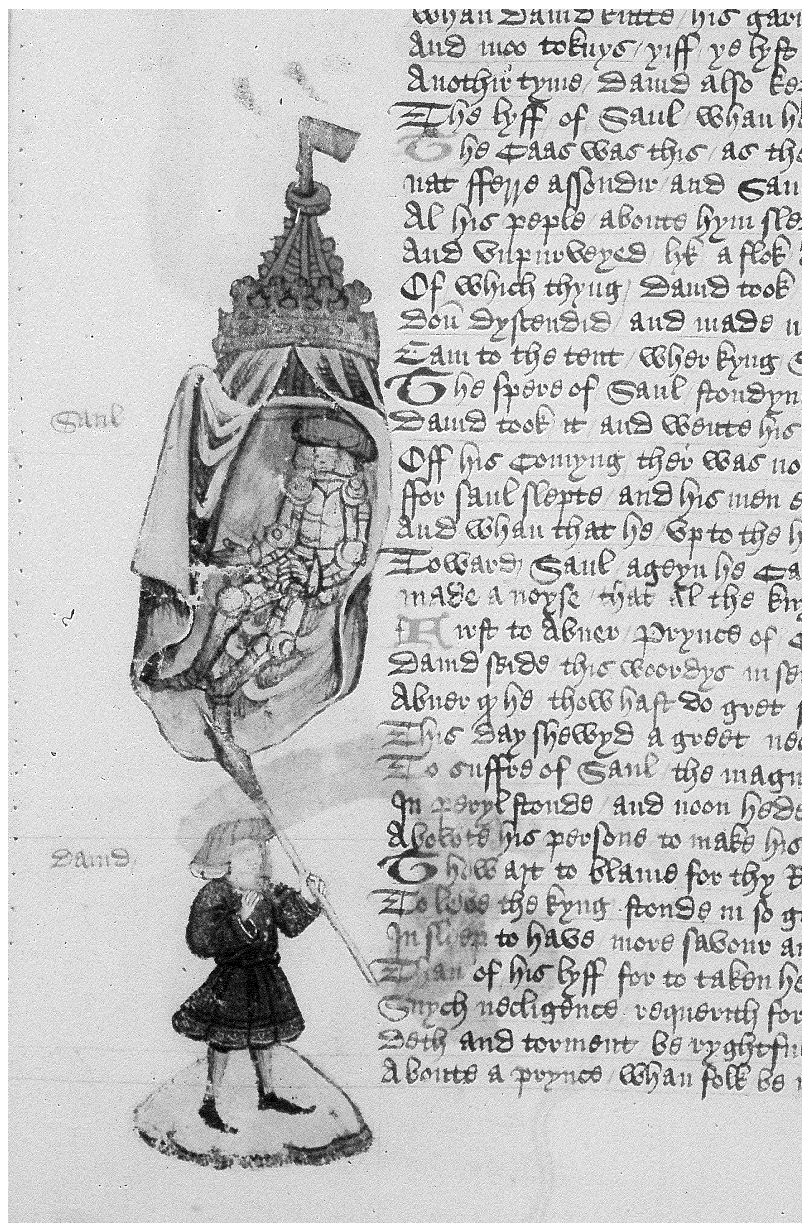 Whan Dauid kutte / his garn
And moo toknys / yiff ye lyst
Anothir tyme / Dauid also ke
The lyff / of Saul / whan h
The Caas was this / as the
nat fferre assondir / and Sau
Al his peple / aboute hym sle
And vnpurveyed / lyk a flok
Of which thyng / Dauid took
Doun dyscendid / and made n
Cam to the tent / wher kyng S
The spere of Saul / stondyn
Dauid took it / and wente his
Off his Comyng / ther was no
ffor Saul slepte / and his men e
And whan that he / vp to the h
Toward Saul / ageyn he Ca
made a noyse / that al the kyn
Saul
ffirst to Abner / Prynce of
Dauid seide / this woordys in se
Abner quod he / thow hast do gret
This day shewyd / a greet nec
To suffre of Saul / the magn
In peryl stonde / and noon hede
Abowte his persone / to make his
Thow art to blame / for thy R
Dauid
To leve the kyng / stonde in so gr
In sleep to have / more savour an
Than of his lyff / for to taken he
Swych necligence / requerith for
Deth and torment / be ryghtfu
Aboute a prynce / whan folk be n